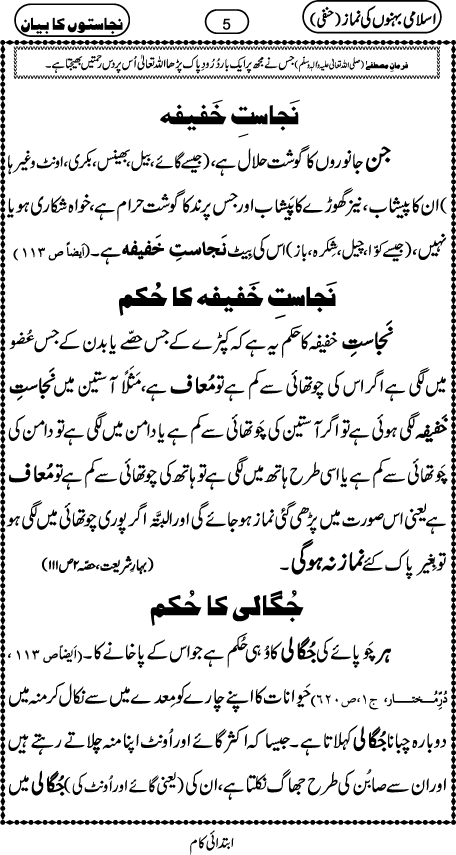 اسلامی بہنوں کی نماز (حنفی)
5
نجاستوں کا بیان
فرمانِ مصطفےٰ (صلی اللہ تعالیٰ علیہ والہٖ وسلّم) جس نے مجھ پر ایک بار دُرُودِ پاک پڑھا اللہ تعالیٰ اُس پر دس رحمتیں بھیجتا ہے۔
نَجاستِ خَفیفہ
جن جانوروں کا گوشت حلال ہے، (جیسے گائے، بیل، بھینس، بکری، اونٹ وغیرہا
)ان کا پیشاب، نیز گھوڑے کا پَیشاب اور جس پرند کا گوشت حرام ہے، خواہ شکاری ہو یا
نہیں، (جیسے کوّا، چیل، شِکرہ، باز) اس کی بِیٹ نَجاستِ خَفیفہ ہے۔ (اَیضاً ص ۱۱۳)
نَجاستِ خَفیفہ کا حُکم
نَجاستِ خفیفہ کا حکم یہ ہے کہ کپڑے کے جس حصّے یا بدن کے جس عُضو
میں لگی ہے اگر اس کی چوتھائی سے کم ہے تو مُعاف ہے، مَثَلاً آستین میں نَجاستِ
خَفیفہ لگی ہوئی ہے تو اگر آستین کی چَوتھائی سے کم ہے یا دامن میں لگی ہے تو دامن کی
چَوتھائی سے کم ہے یا اسی طرح ہاتھ میں لگی ہے تو ہاتھ کی چوتھائی سے کم ہے تو مُعاف
ہے یعنی اس صورت میں پڑھی گئی نماز ہو جائے گی اور البتَّہ اگر پوری چوتھائی میں لگی ہو
تو بِغیر پاک کئے نماز نہ ہو گی۔ (بہارِ شریعت، حصّہ ۲ ص ۱۱۱)
جُگالی کا حُکم
ہر چَوپائے کی جُگالی کا وُہی حُکم ہے جو اس کے پاخانے کا۔ (اَیضاً ص ۱۱۳،
دُرِّمُختار، ج ۱، ص ۶۲۰) حَیوانات کا اپنے چارے کو مِعدے میں سے نکال کر منہ میں
دوبارہ چبانا جُگالی کہلاتا ہے۔ جیسا کہ اکثر گائے اور اُونٹ اپنا منہ چلاتے رہتے ہیں
اور ان سے صابُن کی طرح جھاگ نکلتا ہے، ان کی (یعنی گائے اور اُونٹ کی) جُگالی میں
ابتدائی کام